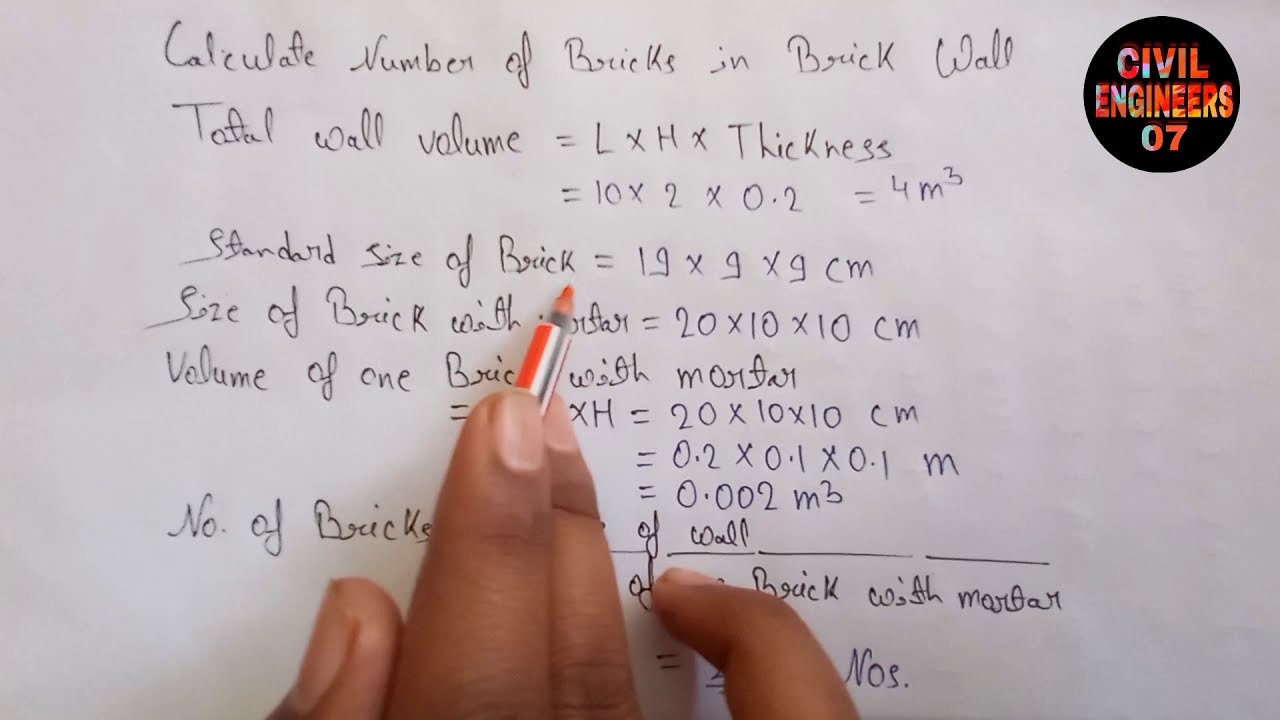 Calculate Number of Bricks in Brick Wall
Total wall volume = L x H x Thickness
= 10 x 2 x 0.2 = 4 m³
Standard size of Brick = 19 x 9 x 9 cm
Size of Brick with mortar = 20 x 10 x 10 cm
Volume of one Brick with mortar
= xH = 20 x 10 x 10 cm
= 0.2 x 0.1 x 0.1 m
= 0.002 m³
No. of Bricks of wall
of Brick with mortar
= Nos.
CIVIL
ENGINEERS
07